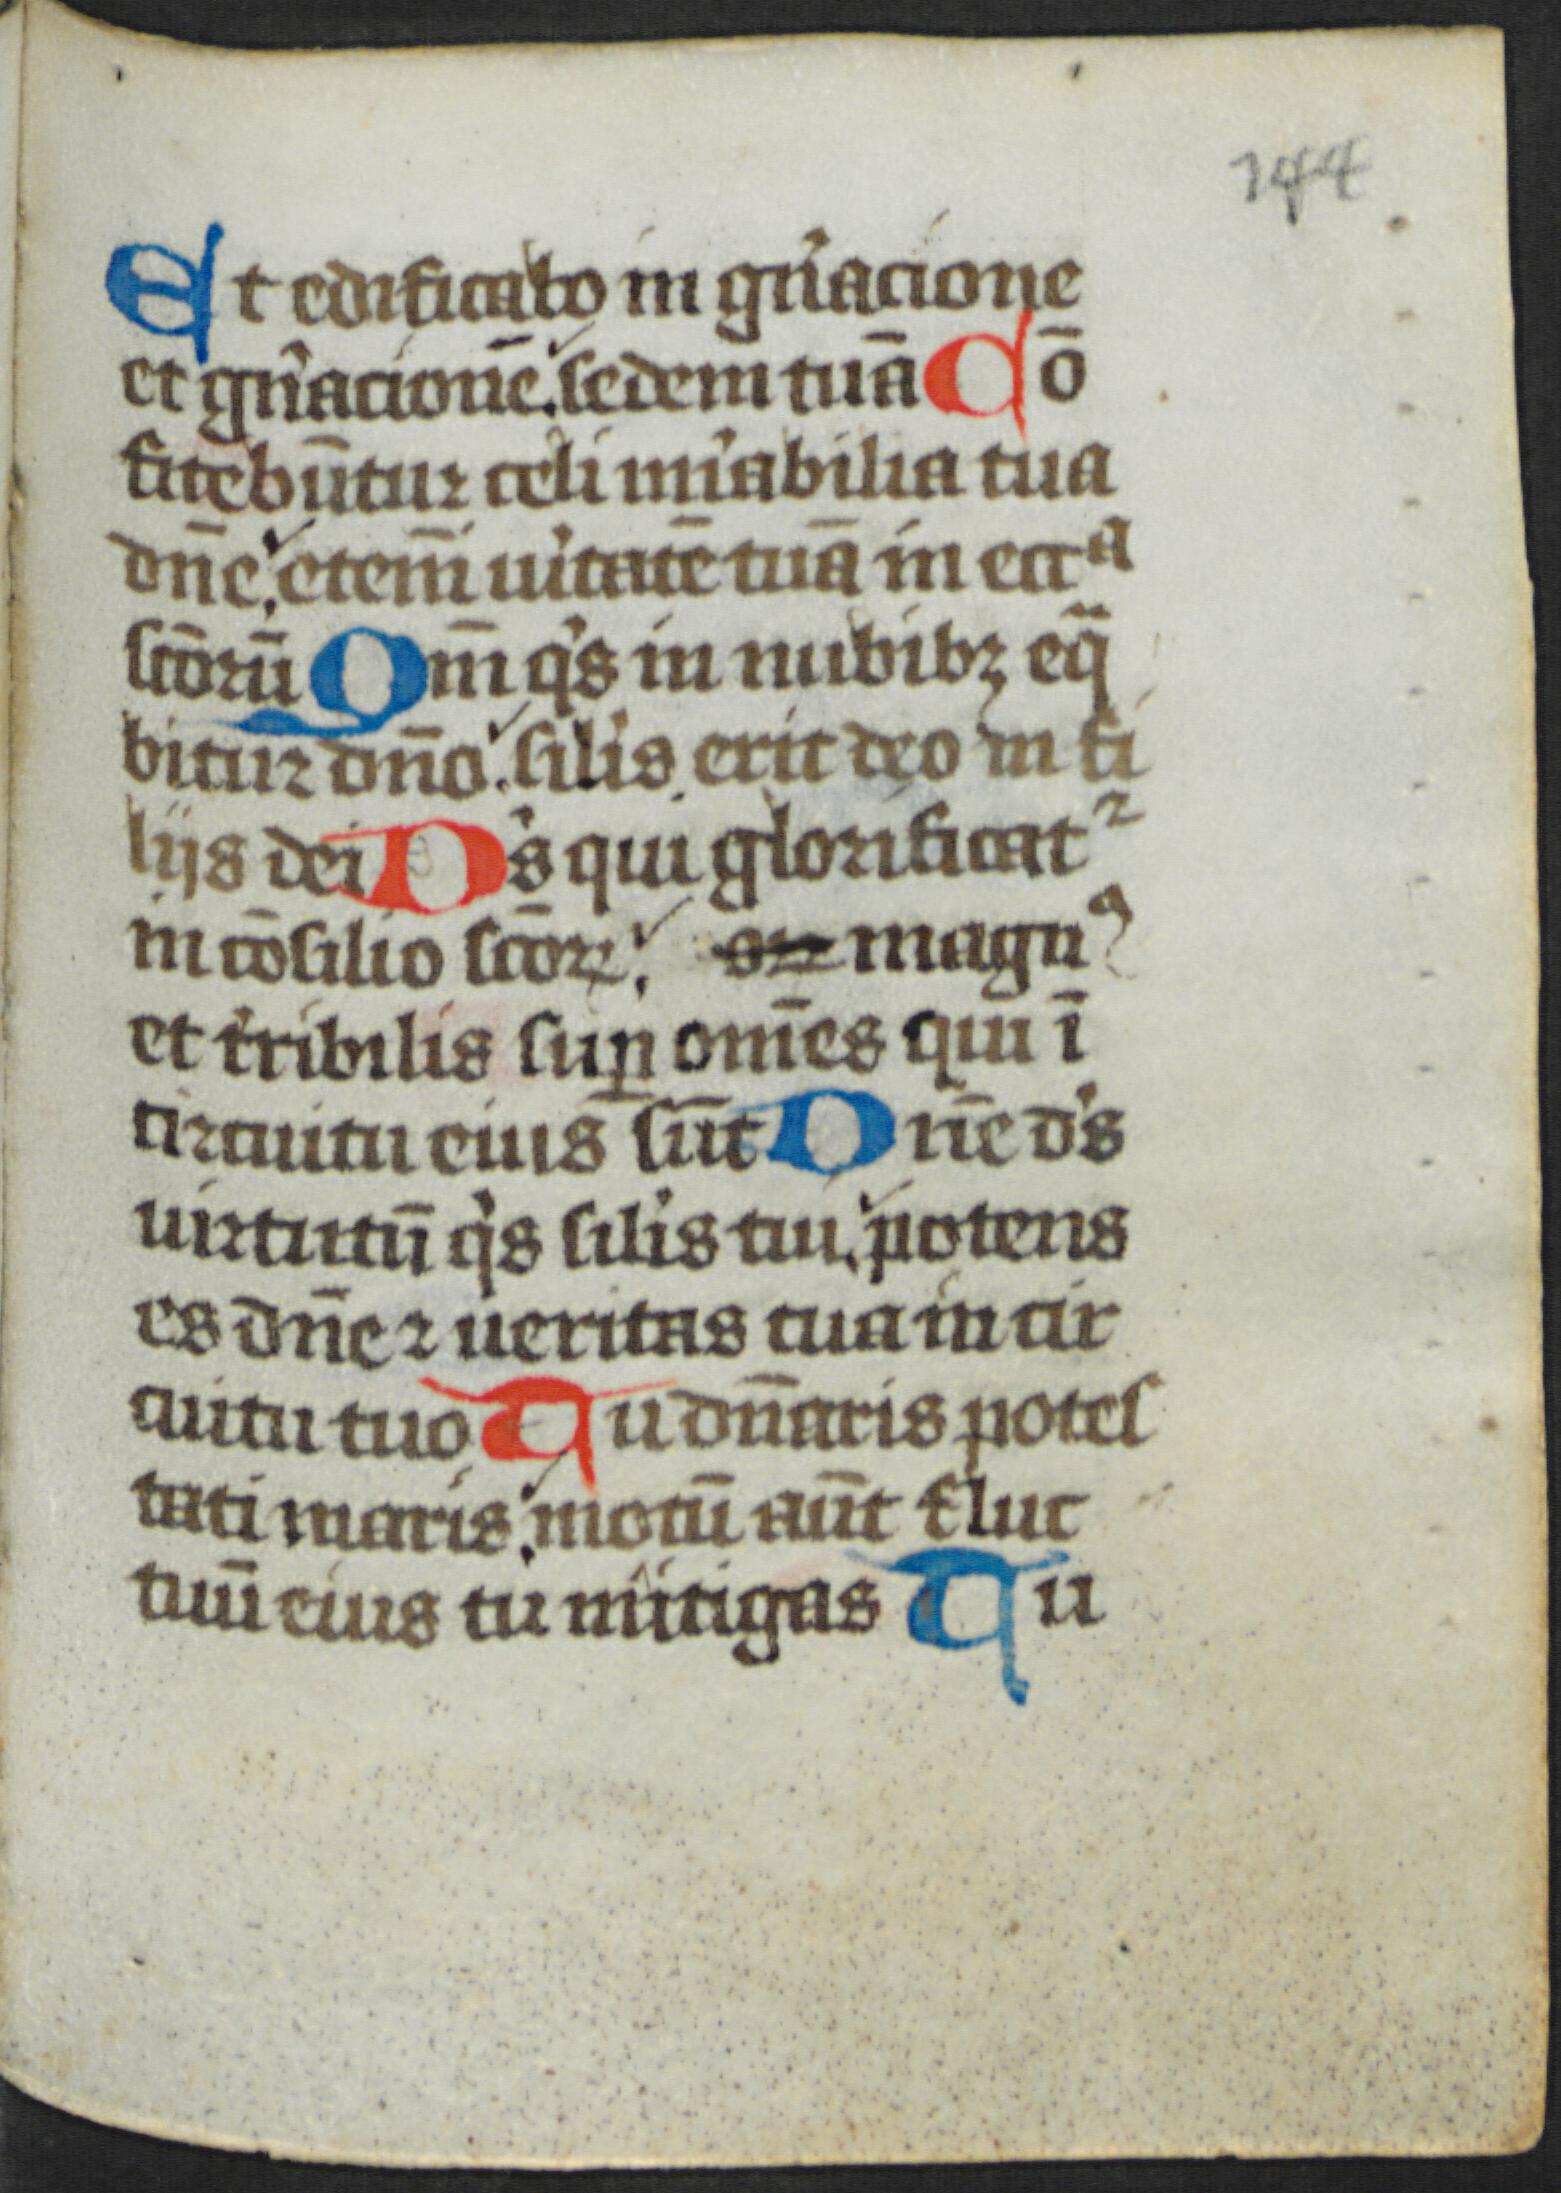 144
Et edificabo in gn̉acione
et gn̉acionē. sedem tuā Cō
fitebūtur celi mỉabilia tua
dn̄e, eteni̅ uỉtatē tuā in ecc̅ᵃ
sc̄orū Qm̄ q̉s in nubibꝫ eq̄
bitur dn̄o. sil̉is erit deo in fi
lijs dei D̉s qui glorificatᷣ
in cōsilio sc̄oꝝ, magnꝰ
et t̉ribilis suꝑ om̄es qui ī
circuitu eius sūt Dn̄e d̉s
uirtutū q̉s sil̉is tui, potens
es dn̄e ⁊ ueritas tua in cir
cuitu tuo Tu dn̄aris potes
tati maris, motū aūt fluc
tuū eius tu mitigas Tu